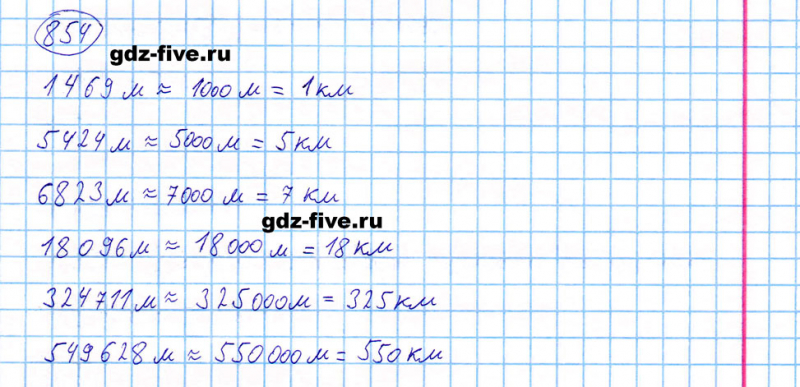 854
gdz-five.ru
1469 м ≈ 1000 м = 1 км
5424 м ≈ 5000 м = 5 км
6823 м ≈ 7000 м = 7 км
gdz-five.ru
18096 м ≈ 18000 м = 18 км
324711 м ≈ 325000 м = 325 км
549628 м ≈ 550000 м = 550 км